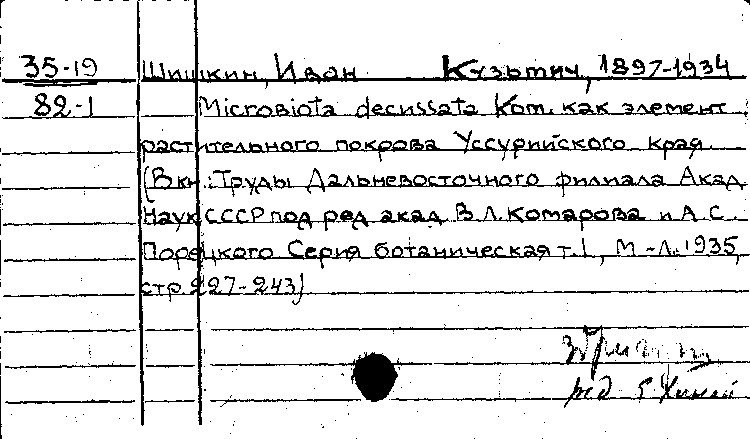 35-19 Шишкин, Иван Кузьмич, 1897-1934
82-1 Microbiota decussata Kom. как элемент
растительного покрова Уссурийского края
(В кн.: Труды Дальневосточного филиала Акад
Наук СССР под ред акад В.Л. Комарова и А.С.
Порецкого Серия ботаническая т.1, М-Л. 1935,
стр 227-243)